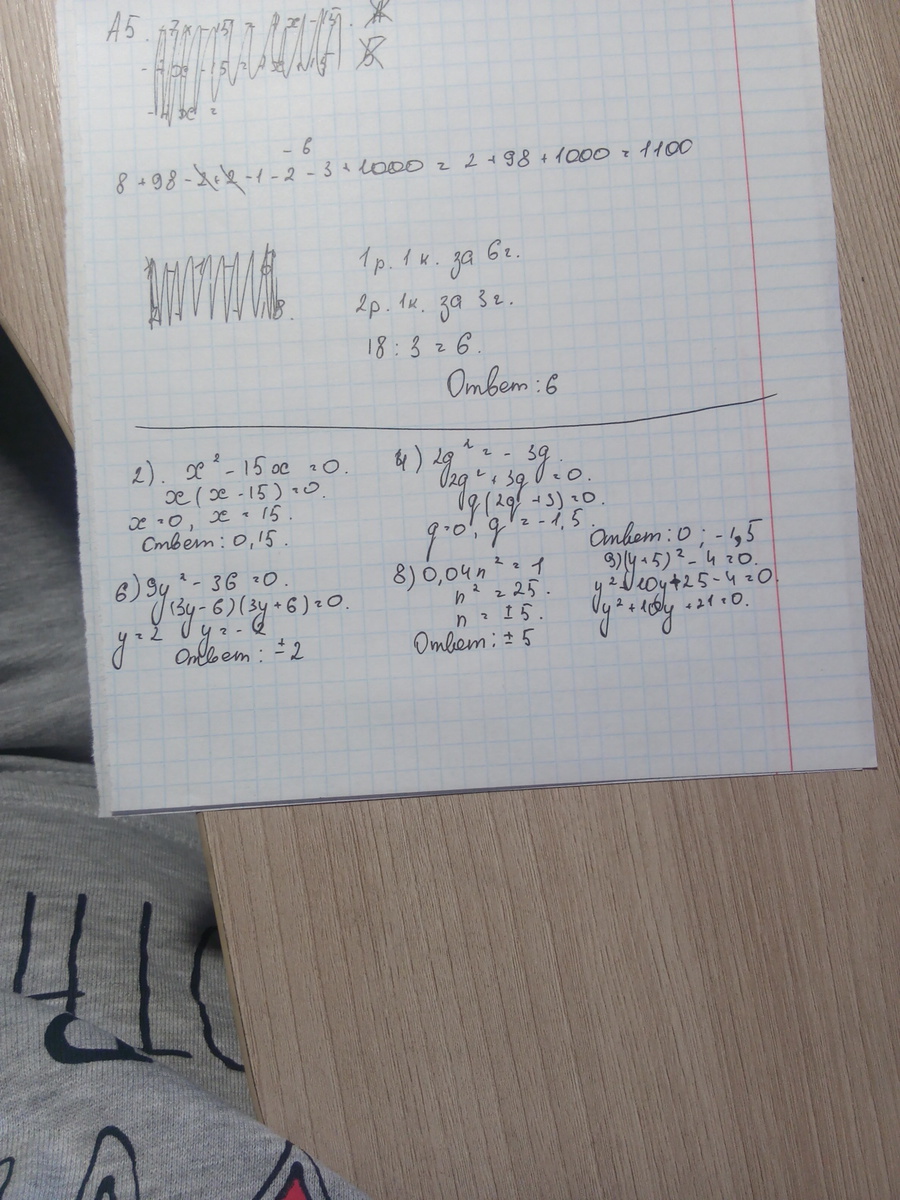 А5.
- 6
8 + 98 - 2 + 2 - 1 - 2 - 3 + 1000 = 2 + 98 + 1000 = 1100
1р. 1к. за 6г.
2р. 1к. за 3г.
18 : 3 = 6.
Ответ: 6
2). x² - 15x = 0.
x(x - 15) = 0.
x = 0, x = 15.
Ответ: 0, 15.
4) 2q² = - 3q.
2q² + 3q = 0.
q(2q + 3) = 0.
q = 0, q = - 1,5.
Ответ: 0 ; - 1,5
6) 9y² - 36 = 0.
(3y - 6)(3y + 6) = 0.
y = 2 y = - 2
Ответ: ± 2
8) 0,04n² = 1
n² = 25.
n = ± 5.
Ответ: ± 5
9) (y + 5)² - 4 = 0.
y² + 10y + 25 - 4 = 0
y² + 10y + 21 = 0.